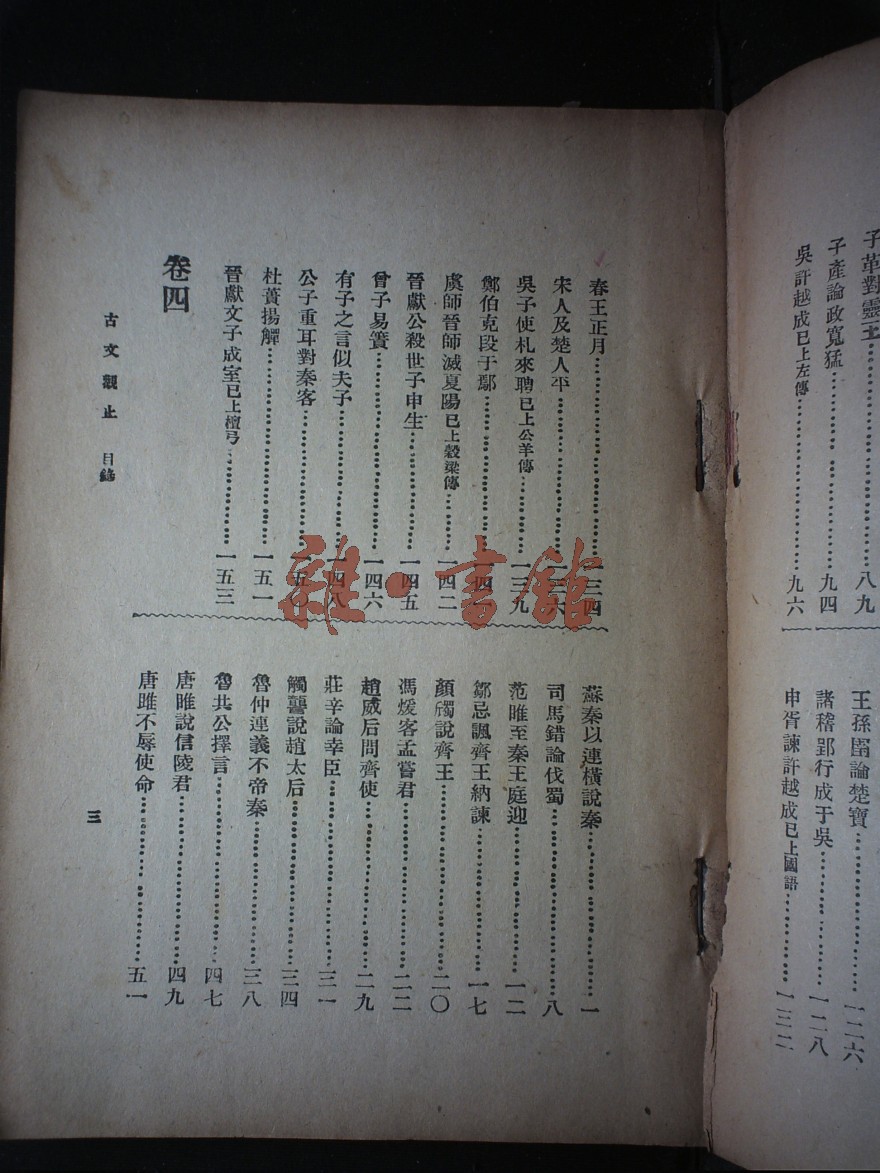 子革對靈王………八九
子產論政寬猛………九四
吳許越成已上左傳………九六
王孫圉論楚寶………一二六
諸稽郢行成于吳………一二八
申胥諫許越成已上國語………一三二
春王正月………一三四
宋人及楚人平………一三六
吳子使札來聘已上公羊傳………一三九
鄭伯克段于鄢………一四
虞師晉師滅夏陽已上穀梁傳………一四二
晉獻公殺世子申生………一四五
曾子易簀………一四六
有子之言似夫子………一四八
公子重耳對秦客………一五〇
杜蕢揚觶………一五一
晉獻文子成室已上檀弓………一五三
卷四
蘇秦以連橫說秦………一
司馬錯論伐蜀………八
范睢至秦王庭迎………一二
鄒忌諷齊王納諫………一七
顏斶說齊王………二〇
馮煖客孟嘗君………二二
趙威后問齊使………二九
莊辛論幸臣………三一
觸讋說趙太后………三四
魯仲連義不帝秦………三八
魯共公擇言………四七
唐睢說信陵君………四九
唐雎不辱使命………五一
古文觀止 目錄
三
雜·書館